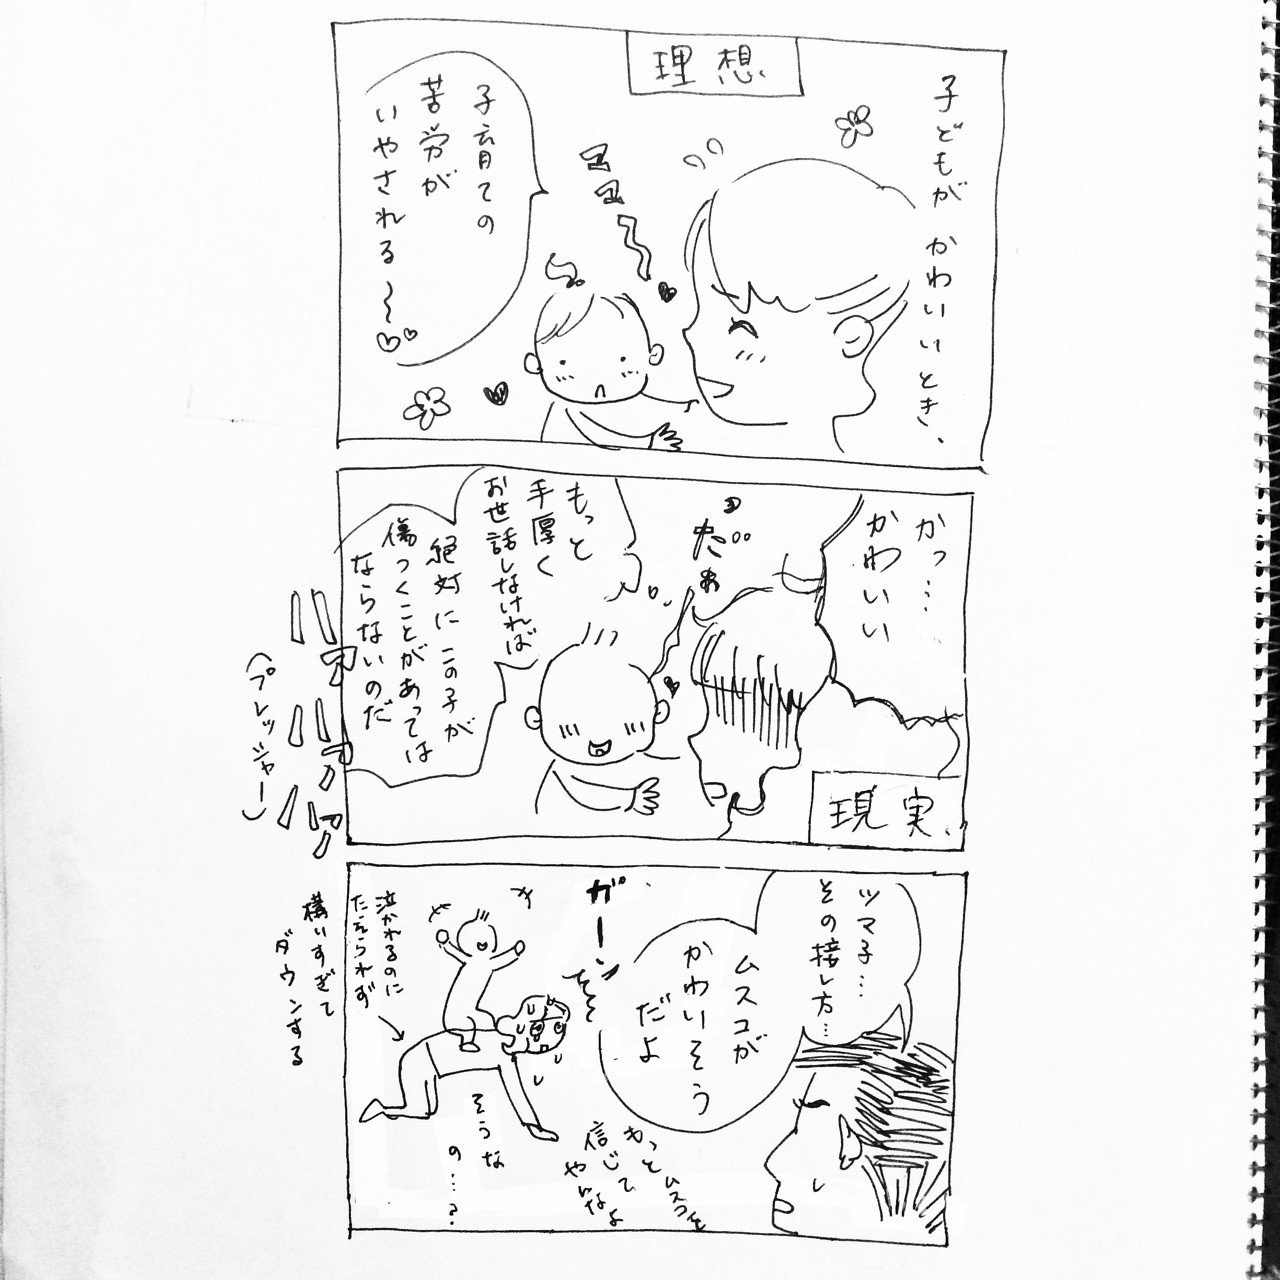 理想
子どもが かわいいとき、
子育ての
苦労が
いやされる〜
かっ…
かわいい
もっと
手厚く
お世話しなければ
絶対にこの子が
傷つくことがあっては
ならないのだ
(プレッシャー)
現実
ツマ子…
その接し方…
ムスコが
かわいそう
だよ
ガーン
もっとムスコを
信じて
やんなよ
そうな
の…?
泣かれるのに
たえられず
構いすぎて
ダウンする